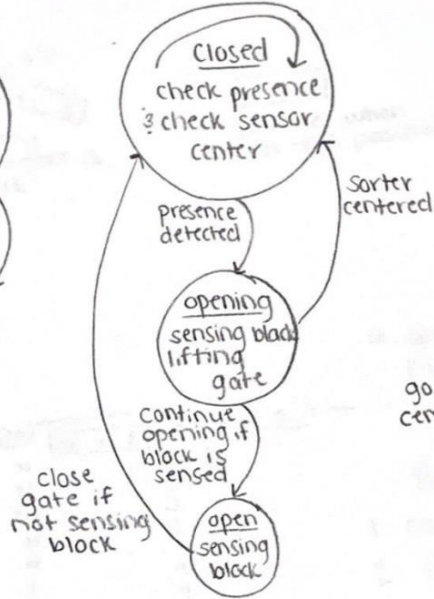 closed
check presence
& check sensor
center
presence
detected
sorter
centered
opening
sensing block
lifting
gate
continue
opening if
block is
sensed
go
cen
close
gate if
not sensing
block
open
sensing
block